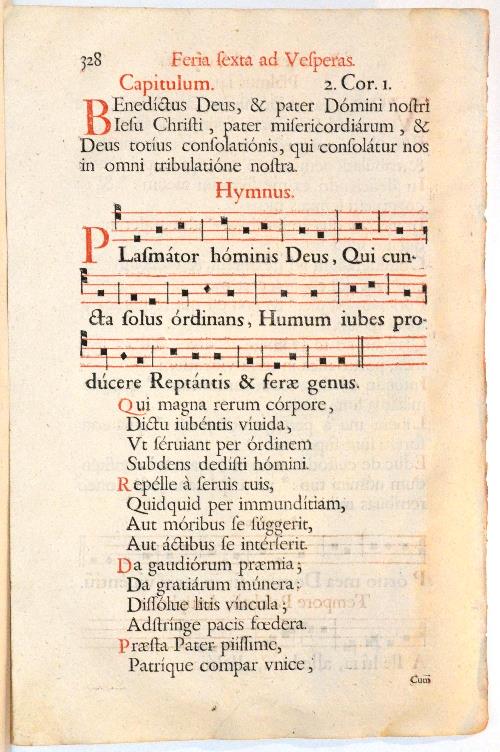 328 Feria ſexta ad Veſperas.
Capitulum. 2. Cor. 1.
BEnedíctus Deus, & pater Dómini noſtri
Ieſu Chriſti, pater miſericordiárum, &
Deus totíus conſolatiónis, qui conſolátur nos
in omni tribulatióne noſtra.
Hymnus.
PLaſmátor hóminis Deus, Qui cun-
cta ſolus órdinans, Humum iubes pro-
dúcere Reptántis & feræ genus.
Qui magna rerum córpore,
Dictu iubéntis víuida,
Vt ſéruiant per órdinem
Subdens dediſti hómini.
Repélle à ſeruis tuis,
Quidquid per immundítiam,
Aut móribus ſe ſúggerit,
Aut áctibus ſe intérſerit.
Da gaudiórum præmia;
Da gratiárum múnera;
Diſſólue litis víncula;
Adſtrínge pacis fœdera.
Præſta Pater piíſſime,
Patríque compar vnice,
Cum̃